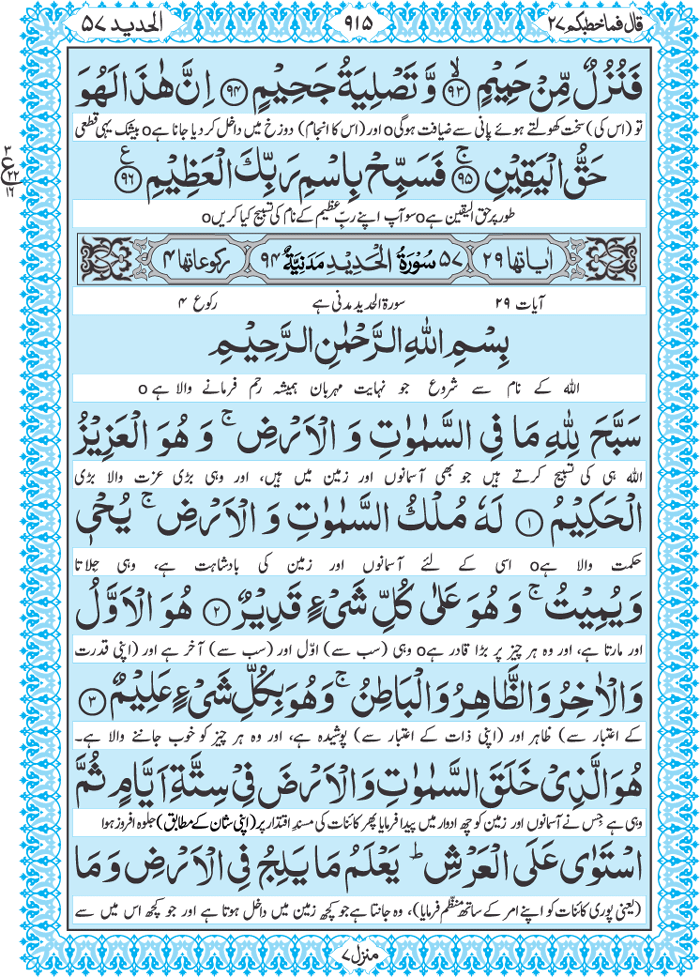 قال فما خطبكم ۲۷ ۹۱۵ الحديد ۵۷
فَنُزُلٌ مِّنْ حَمِيْمٍ ﴿۹۳﴾ۙ وَّ تَصْلِيَةُ جَحِيْمٍ ﴿۹۴﴾ اِنَّ هٰذَا لَهُوَ
تو (اس کی) سخت کھولتے ہوئے پانی سے ضیافت ہوگیo اور (اس کا انجام) دوزخ میں داخل کر دیا جانا ہےo بیشک یہی قطعی
حَقُّ الْيَقِيْنِ ﴿۹۵﴾ۚ فَسَبِّحْ بِاسْمِ رَبِّكَ الْعَظِيْمِ ﴿۹۶﴾ع
۳ ع ۲۲ ۱۶
طور پر حق الیقین ہےo سو آپ اپنے ربِ عظیم کے نام کی تسبیح کیا کریںo
اٰیاتها ۲۹ ۵۷ سُوْرَةُ الْحَدِيْدِ مَدَنِيَّةٌ ۹۴ رکوعاتها ۴
آیات ۲۹ سورۃ الحدید مدنی ہے رکوع ۴
بِسْمِ اللهِ الرَّحْمٰنِ الرَّحِيْمِ
اللہ کے نام سے شروع جو نہایت مہربان ہمیشہ رحم فرمانے والا ہے o
سَبَّحَ لِلّٰهِ مَا فِي السَّمٰوٰتِ وَ الْاَرْضِ ۚ وَ هُوَ الْعَزِيْزُ
اللہ ہی کی تسبیح کرتے ہیں جو بھی آسمانوں اور زمین میں ہیں، اور وہی بڑی عزت والا بڑی
الْحَكِيْمُ ﴿۱﴾ لَهٗ مُلْكُ السَّمٰوٰتِ وَ الْاَرْضِ ۚ يُحْيٖ
حکمت والا ہےo اسی کے لئے آسمانوں اور زمین کی بادشاہت ہے، وہی جِلاتا
وَيُمِيْتُ ۚ وَ هُوَ عَلٰى كُلِّ شَيْءٍ قَدِيْرٌ ﴿۲﴾ هُوَ الْاَوَّلُ
اور مارتا ہے، اور وہ ہر چیز پر بڑا قادر ہےo وہی (سب سے) اوّل اور (سب سے) آخر ہے اور (اپنی قدرت
وَالْاٰخِرُ وَالظَّاهِرُ وَالْبَاطِنُ ۚ وَهُوَ بِكُلِّ شَيْءٍ عَلِيْمٌ ﴿۳﴾
کے اعتبار سے) ظاہر اور (اپنی ذات کے اعتبار سے) پوشیدہ ہے، اور وہ ہر چیز کو خوب جاننے والا ہے۔
هُوَ الَّذِيْ خَلَقَ السَّمٰوٰتِ وَالْاَرْضَ فِيْ سِتَّةِ اَيَّامٍ ثُمَّ
وہی ہے جِس نے آسمانوں اور زمین کو چھ ادوار میں پیدا فرمایا پھر کائنات کی مسندِ اقتدار پر (اپنی شان کے مطابق) جلوہ افروز ہوا
اسْتَوٰى عَلَى الْعَرْشِ ؕ يَعْلَمُ مَا يَلِجُ فِي الْاَرْضِ وَ مَا
(یعنی پوری کائنات کو اپنے امر کے ساتھ منظّم فرمایا)، وہ جانتا ہے جو کچھ زمین میں داخل ہوتا ہے اور جو کچھ اس میں سے
منزل ۷